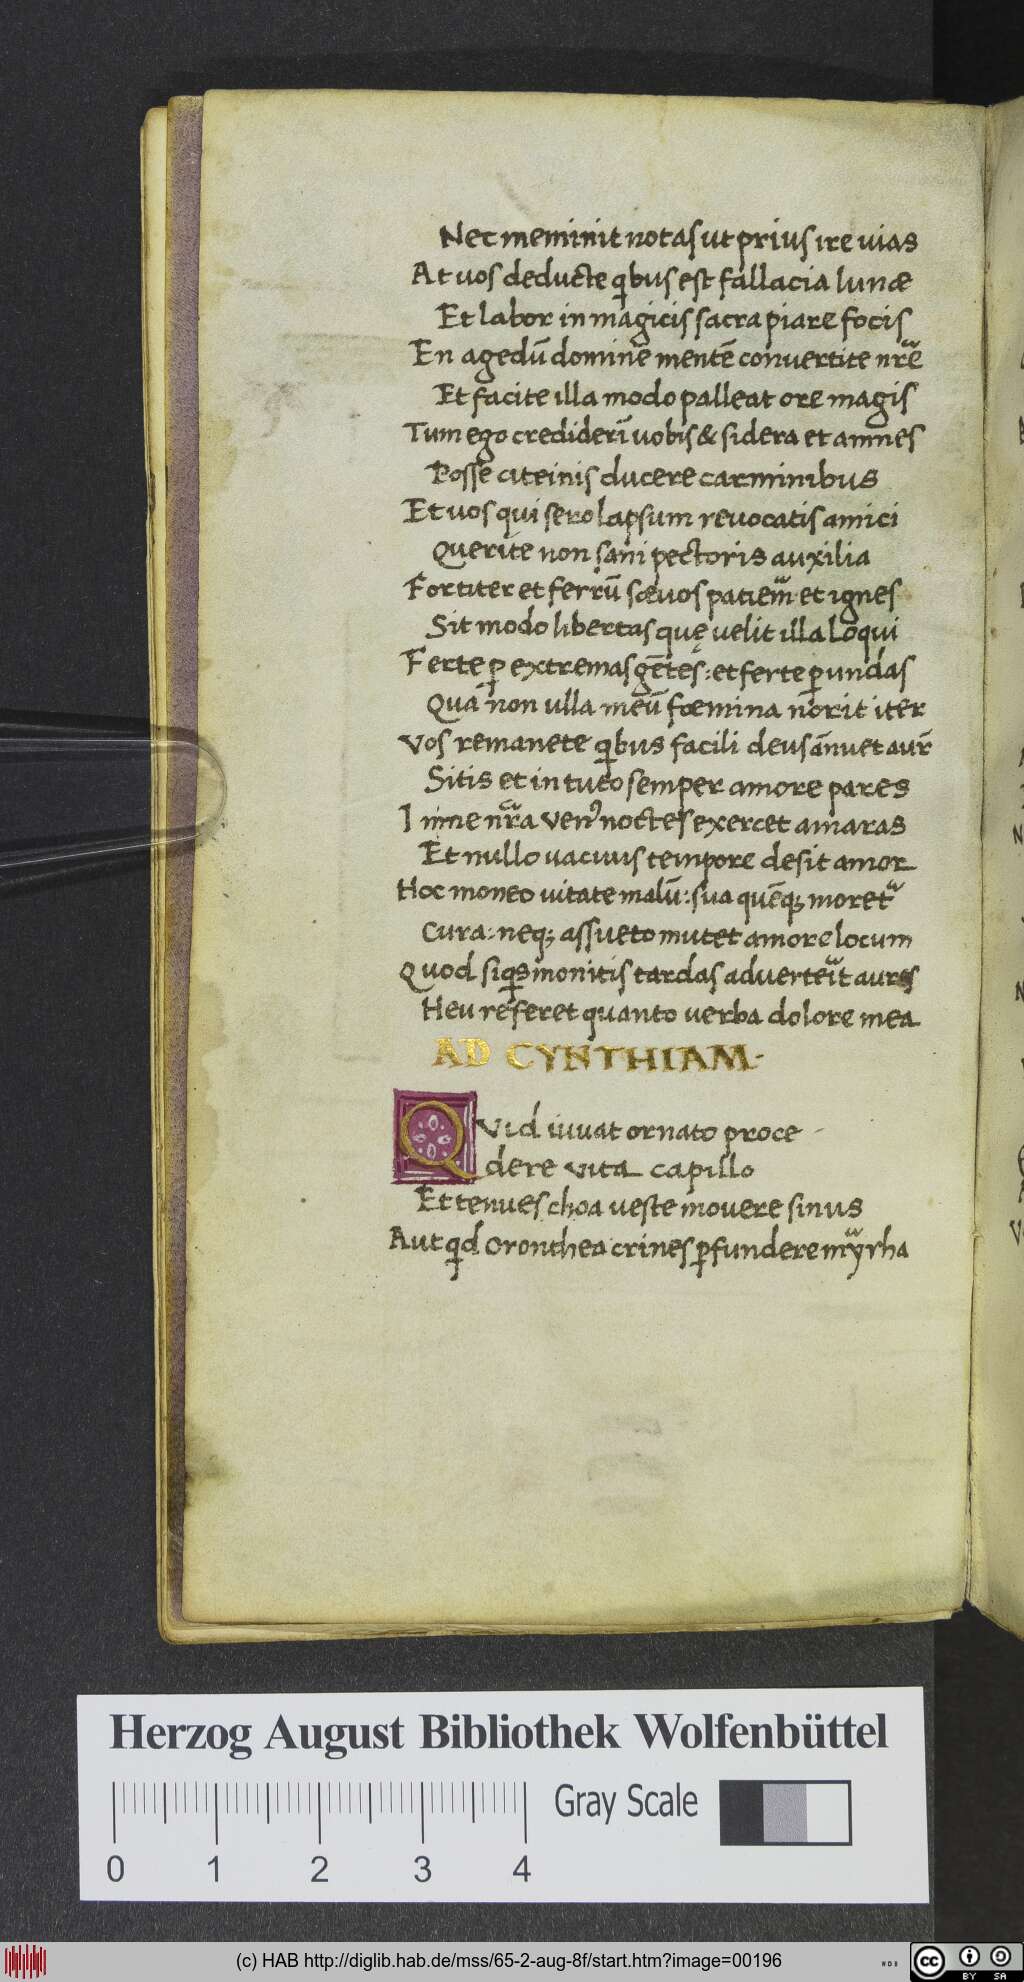 Nec meminit notas ut prius ire uias
At vos deducte qbus est fallacia lunæ
Et labor in magicis sacra piare focis
En agedū domine mentē convertite nr̄e
Et facite illa modo palleat ore magis
Tum ego crediderī uobis & sidera et amnes
Posse citeinis ducere carminibus
Et uos qui sero lapsum reuocatis amici
Querite non sani pectoris auxilia
Fortiter et ferrū sæuos patiem et ignes
Sit modo libertas quę velit illa loqui
Ferte ꝑ extremas gētes: et ferte ꝑ undas
Qua non ulla meū fœmina norit iter
Vos remanete qbus facili deus ānuet aur̄
Sitis et in tuto semper amore pares
In me nr̄a Ven9 noctes exercet amaras
Et nullo uacuus tempore desit amor
Hoc moneo uitate malū: sua quēq; moret
Cura: neq; assueto mutet amore locum
Quod siqs monitis tardas adverteit aures
Heu referet quanto uerba dolore mea
AD CYNTHIAM·
QVid iuuat ornato proce
dere vita capillo
Et tenues choa ueste mouere sinus
Aut qd Oronthea crines ꝑfundere myrha
Herzog August Bibliothek Wolfenbüttel
Gray Scale
0 1 2 3 4
(c) HAB http://diglib.hab.de/mss/65-2-aug-8f/start.htm?image=00196
WDB
cc BY SA